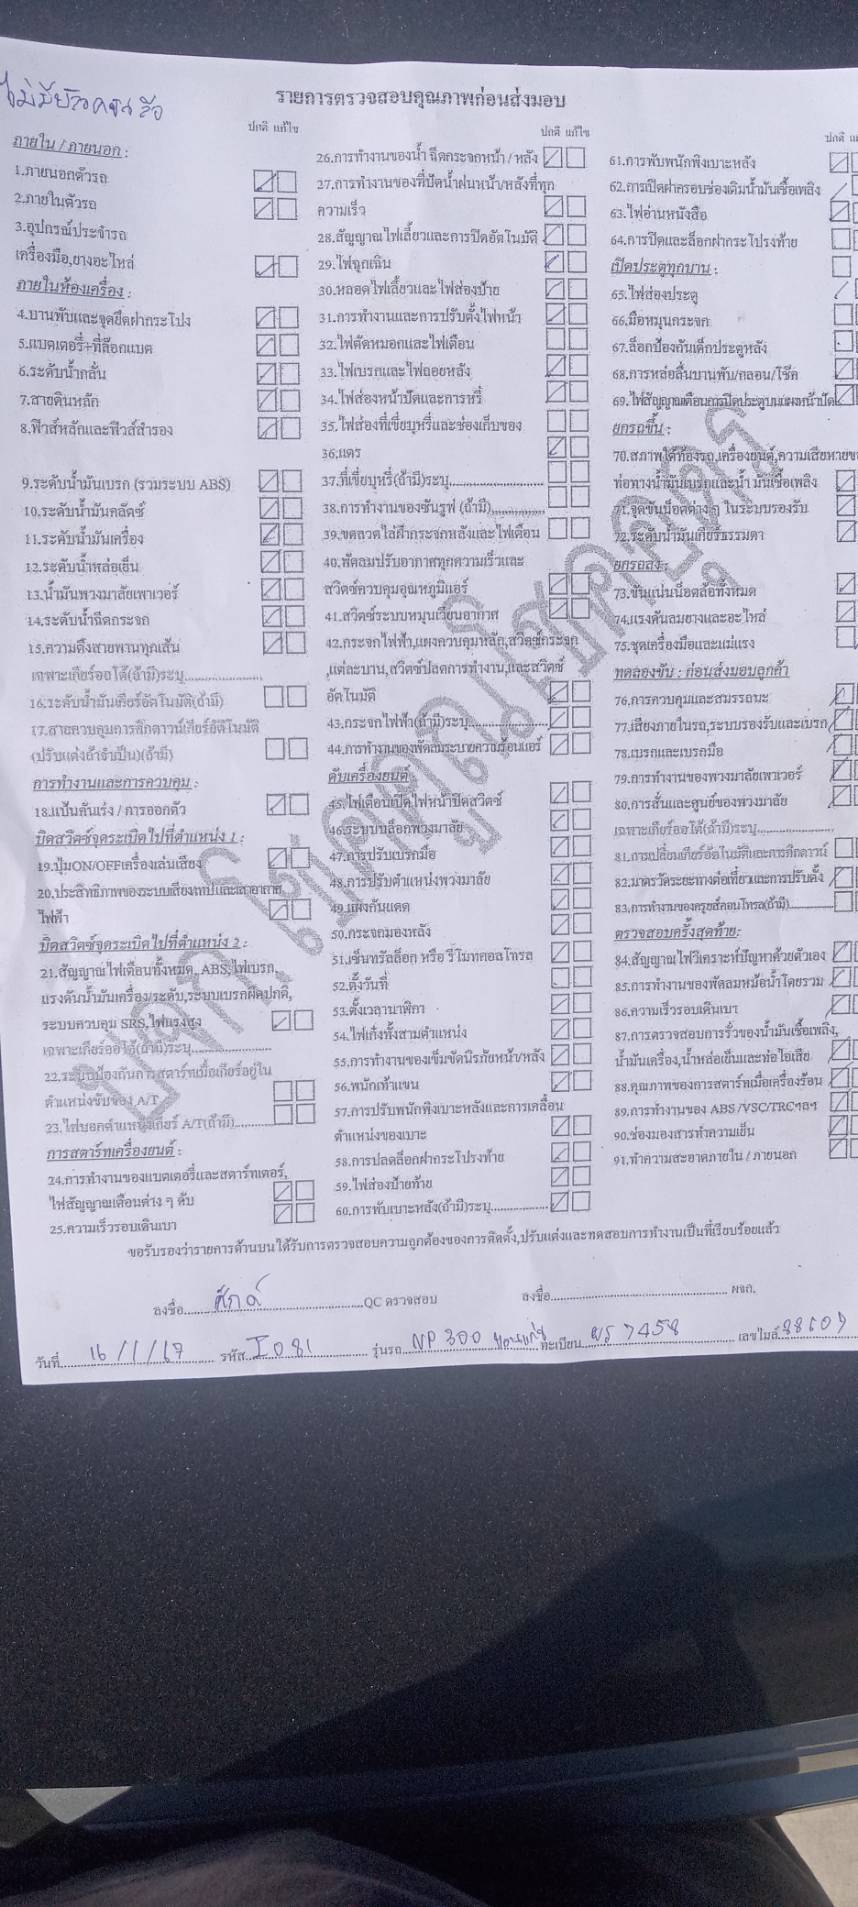 รายการตรวจสอบคุณภาพก่อนส่งมอบ
ปกติ แก้ไข
ภายใน / ภายนอก :
1.ภายนอกตัวรถ
2.ภายในตัวรถ
3.อุปกรณ์ประจำรถ
เครื่องมือ,ยางอะไหล่
ภายในห้องเครื่อง :
4.บานพับและจุดยึดฝากระโปง
5.แบตเตอรี่+ที่ล๊อกแบต
6.ระดับน้ำกลั่น
7.สายดินหลัก
8.ฟิวส์หลักและฟิวส์สำรอง
9.ระดับน้ำมันเบรก (รวมระบบ ABS)
10.ระดับน้ำมันคลัตช์
11.ระดับน้ำมันเครื่อง
12.ระดับน้ำหล่อเย็น
13.น้ำมันพวงมาลัยเพาเวอร์
14.ระดับน้ำฉีดกระจก
15.ความตึงสายพานทุกเส้น
เฉพาะเกียร์ออโต้(ถ้ามี)ระบุ......................
16.ระดับน้ำมันเกียร์อัตโนมัติ(ถ้ามี)
17.สายควบคุมการคิกดาวน์เกียร์อัติโนมัติ
(ปรับแต่งถ้าจำเป็น)(ถ้ามี)
การทำงานและการควบคุม :
18.แป้นคันเร่ง / การออกตัว
บิดสวิตซ์จุดระเบิดไปที่ตำแหน่ง 1 :
19.ปุ่มON/OFFเครื่องเล่นเสียง
20.ประสิทธิภาพของระบบเสียงเทปและเสาอากาศ
ไฟฟ้า
บิดสวิตซ์จุดระเบิดไปที่ตำแหน่ง 2 :
21.สัญญาณไฟเตือนทั้งหมด, ABS,ไฟเบรก,
แรงดันน้ำมันเครื่อง/ระดับ,ระบบเบรกผิดปกติ,
ระบบควบคุม SRS,ไฟแรงสูง
เฉพาะเกียร์ออโต้(ถ้ามี)ระบุ......................
22.ระบบป้องกันการสตาร์ทเมื่อเกียร์อยู่ใน
ตำแหน่งขับของ A/T
23.ไฟบอกตำแหน่งเกียร์ A/T(ถ้ามี)...........
การสตาร์ทเครื่องยนต์ :
24.การทำงานของแบตเตอรี่และสตาร์ทเตอร์,
ไฟสัญญาณเตือนต่าง ๆ ดับ
25.ความเร็วรอบเดินเบา
ปกติ แก้ไข
26.การทำงานของน้ำ ฉีดกระจกหน้า / หลัง
27.การทำงานของที่ปัดน้ำฝนหน้า/หลังที่ทุก
ความเร็ว
28.สัญญาณไฟเลี้ยวและการปิดอัตโนมัติ
29.ไฟฉุกเฉิน
30.หลอดไฟเลี้ยวและไฟส่องป้าย
31.การทำงานและการปรับตั้งไฟหน้า
32.ไฟตัดหมอกและไฟเตือน
33.ไฟเบรกและไฟถอยหลัง
34.ไฟส่องหน้าปัดและการหรี่
35.ไฟส่องที่เขี่ยบุหรี่และช่องเก็บของ
36.แตร
37.ที่เขี่ยบุหรี่(ถ้ามี)ระบุ..........................
38.การทำงานของซันรูฟ (ถ้ามี)...............
39.ขดลวดไล่ฝ้ากระจกหลังและไฟเตือน
40.พัดลมปรับอากาศทุกความเร็วและ
สวิตซ์ควบคุมอุณหภูมิแอร์
41.สวิตซ์ระบบหมุนเวียนอากาศ
42.กระจกไฟฟ้า,แผงควบคุมหลัก,สวิตซ์กระจก
,แต่ละบาน,สวิตซ์ปลดการทำงาน,และสวิตซ์
อัตโนมัติ
43.กระจกไฟฟ้า(ถ้ามี)ระบุ......................
44.การทำงานของพัดลมระบายความร้อนแอร์
ดับเครื่องยนต์
45.ไฟเตือนเปิดไฟหน้าปิดสวิตซ์
46.ระบบบล็อกพวงมาลัย
47.การปรับเบรกมือ
48.การปรับตำแหน่งพวงมาลัย
49.แผงกันแดด
50.กระจกมองหลัง
51.เซ็นทรัลล็อก หรือ รีโมทคอลโทรล
52.ตั้งวันที่
53.ตั้งเวลานาฬิกา
54.ไฟเก๋งทั้งสามตำแหน่ง
55.การทำงานของเข็มขัดนิรภัยหน้า/หลัง
56.พนักเท้าแขน
57.การปรับพนักพิงเบาะหลังและการเคลื่อน
ตำแหน่งของเบาะ
58.การปลดล็อกฝากระโปรงท้าย
59.ไฟส่องป้ายท้าย
60.การพับเบาะหลัง(ถ้ามี)ระบุ................
ปกติ
61.การพับพนักพิงเบาะหลัง
62.การเปิดฝาครอบช่องเติมน้ำมันเชื้อเพลิง
63.ไฟอ่านหนังสือ
64.การปิดและล็อกฝากระโปรงท้าย
เปิดประตูทุกบาน :
65.ไฟส่องประตู
66.มือหมุนกระจก
67.ล็อกป้องกันเด็กประตูหลัง
68.การหล่อลื่นบานพับ/กลอน/โช๊ค
69.ไฟสัญญาณเตือนการปิดประตูบนแผงหน้าปัด
ยกรถขึ้น :
70.สภาพใต้ท้องรถ,เครื่องยนต์,ความเสียหายข
ท่อทางน้ำมันเบรกและน้ำ มันเชื้อเพลิง
71.จุดขันน็อตต่าง ๆ ในระบบรองรับ
72.ระดับน้ำมันเกียร์ธรรมดา
ยกรถลง :
73.ขันแน่นน็อตล้อทั้งหมด
74.แรงดันลมยางและอะไหล่
75.ชุดเครื่องมือและแม่แรง
ทดลองขับ : ก่อนส่งมอบลูกค้า
76.การควบคุมและสมรรถนะ
77.เสียงภายในรถ,ระบบรองรับและเบรก
78.เบรกและเบรกมือ
79.การทำงานของพวงมาลัยเพาเวอร์
80.การสั่นและศูนย์ของพวงมาลัย
เฉพาะเกียร์ออโต้(ถ้ามี)ระบุ......................
81.การเปลี่ยนเกียร์อัตโนมัติและการคิกดาวน์
82.มาตรวัดระยะทางต่อเที่ยวและการปรับตั้ง
83.การทำงานของครูยส์คอนโทรล(ถ้ามี)............
ตรวจสอบครั้งสุดท้าย:
84.สัญญาณไฟวิเคราะห์ปัญหาด้วยตัวเอง
85.การทำงานของพัดลมหม้อน้ำโดยรวม
86.ความเร็วรอบเดินเบา
87.การตรวจสอบการรั่วของน้ำมันเชื้อเพลิง,
น้ำมันเครื่อง,น้ำหล่อเย็นและท่อไอเสีย
88.คุณภาพของการสตาร์ทเมื่อเครื่องร้อน
89.การทำงานของ ABS /VSC/TRCฯลฯ
90.ช่องมองสารทำความเย็น
91.ทำความสะอาดภายใน / ภายนอก
ขอรับรองว่ารายการด้านบนได้รับการตรวจสอบความถูกต้องของการติดตั้ง,ปรับแต่งและทดสอบการทำงานเป็นที่เรียบร้อยแล้ว
ลงชื่อ....ศักดิ์....QC ตรวจสอบ ลงชื่อ.................... ผจก.
วันที่ 16 / 1 / 67 รหัส I 081 รุ่นรถ NP 300 ทะเบียน 7458 เลขไมล์